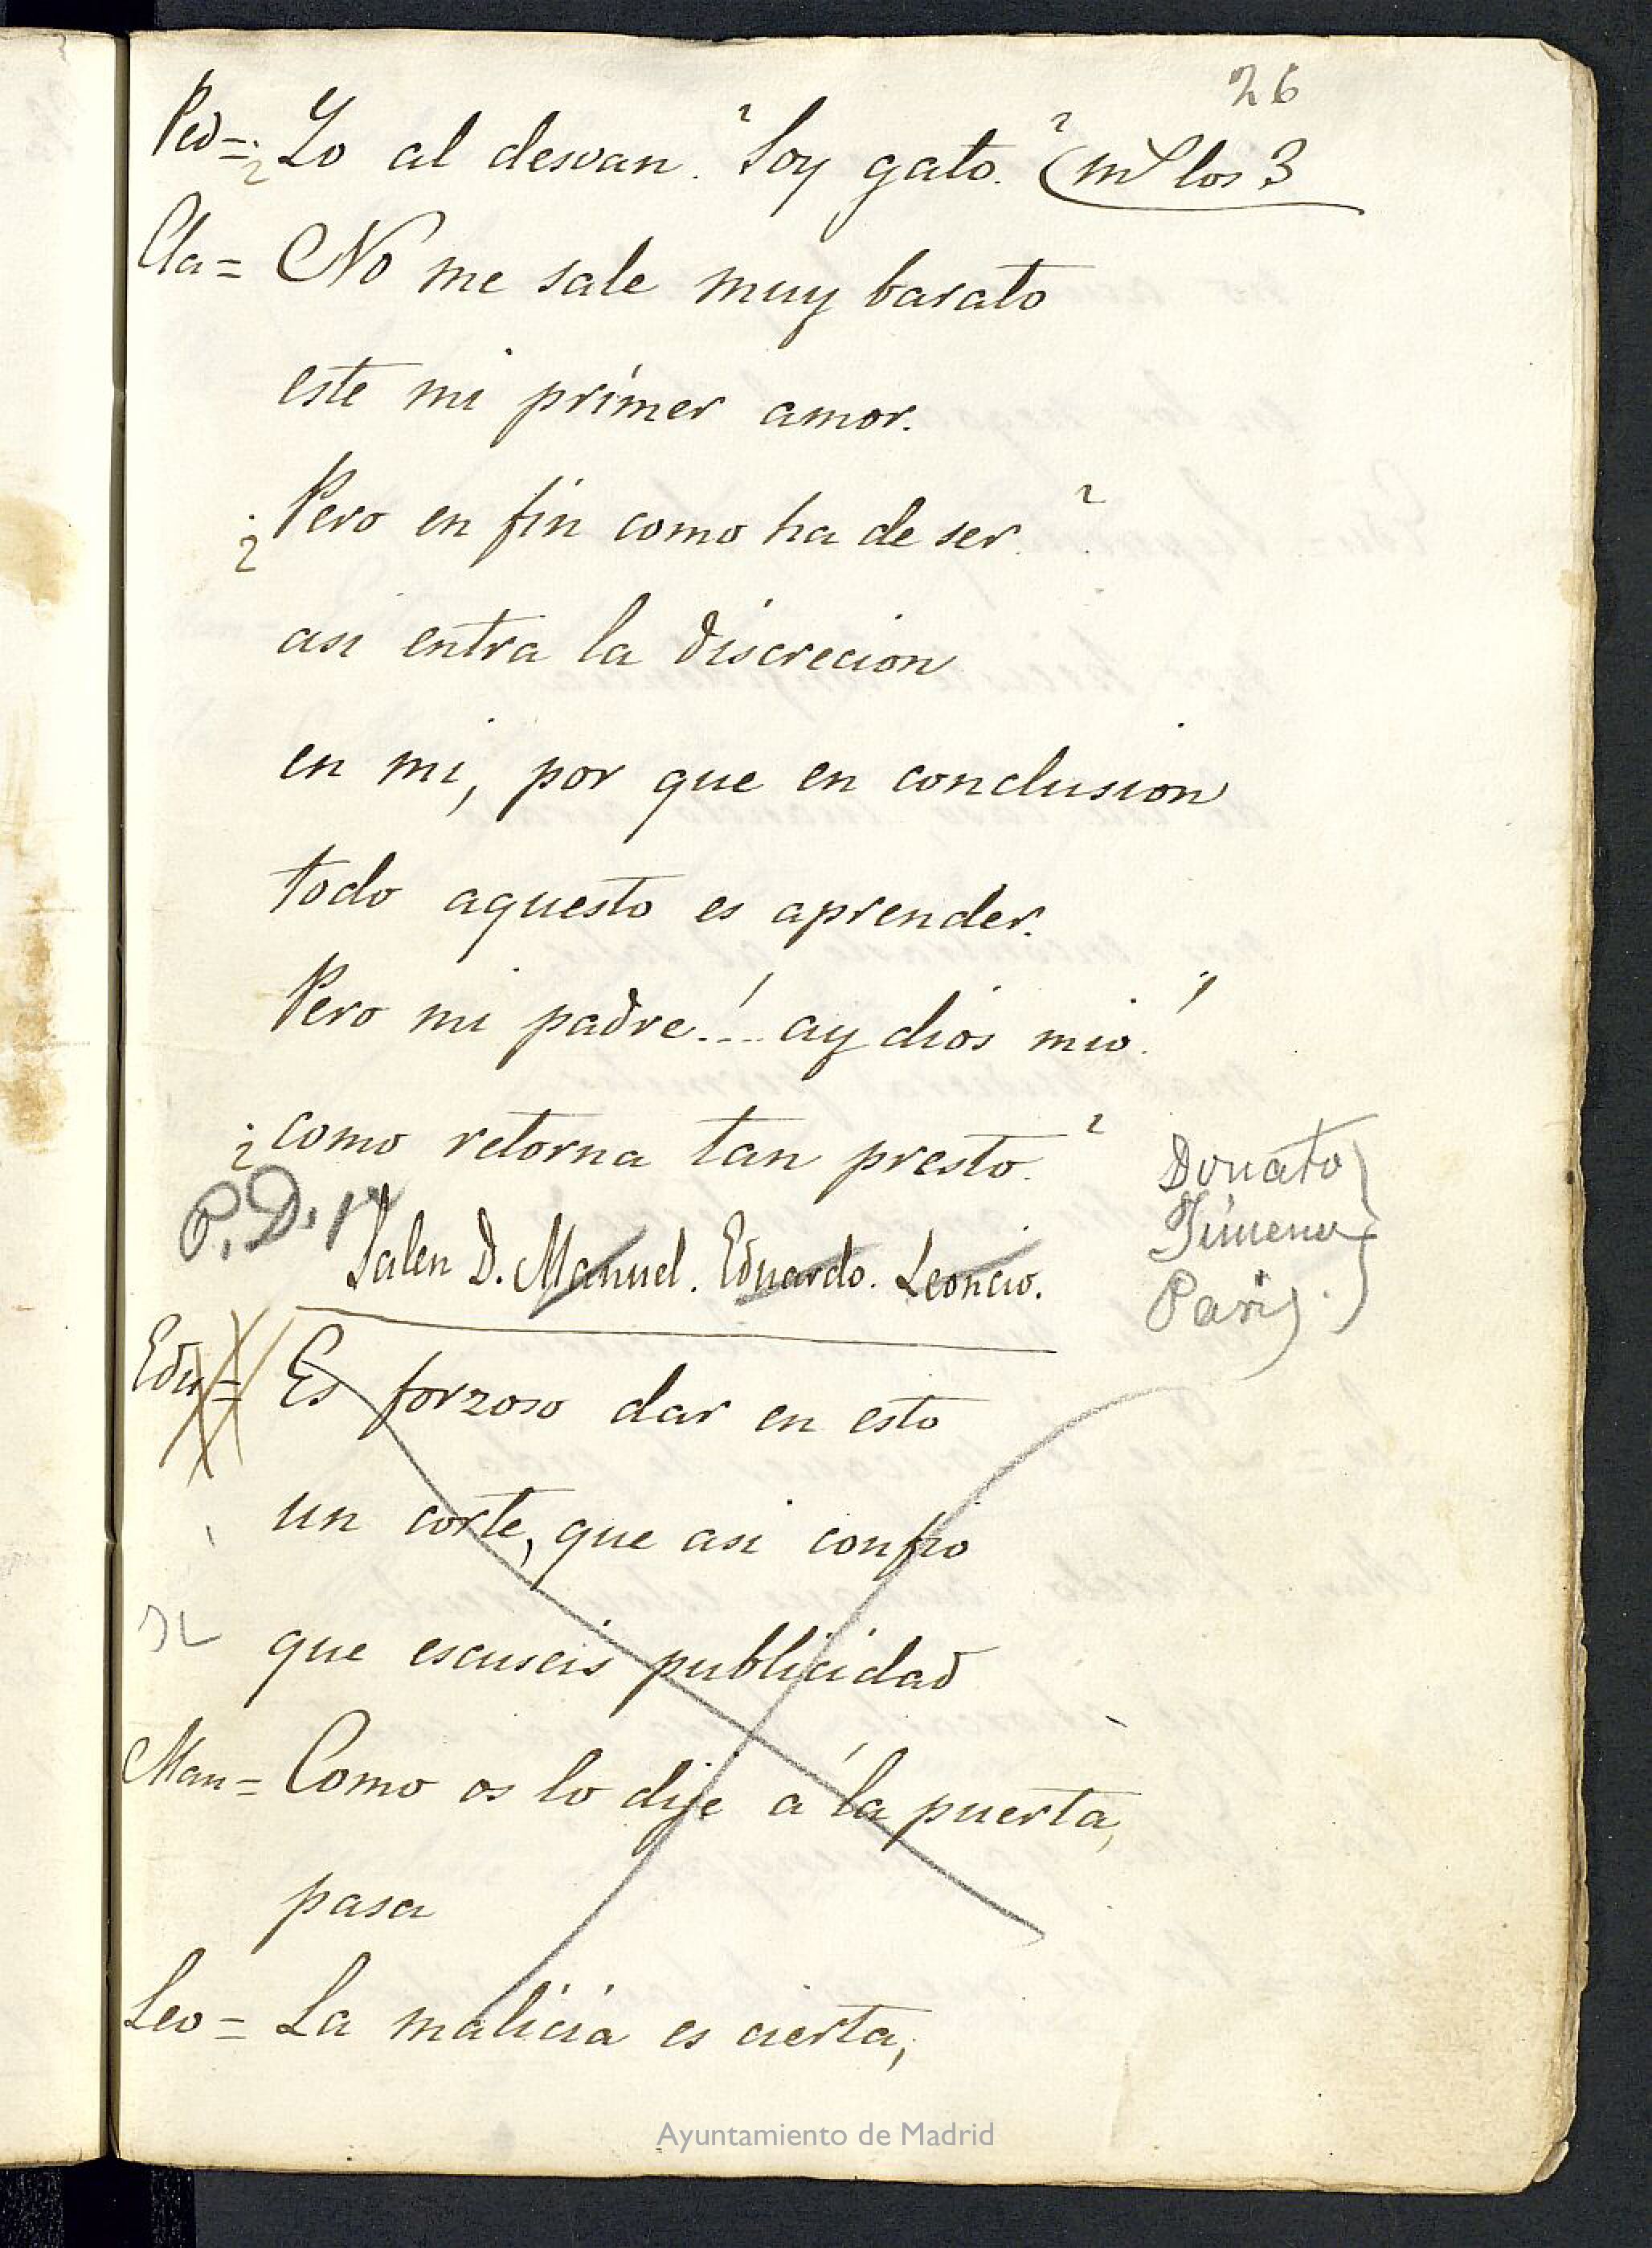 26
Ped=¿ Yo al desvan? Soy gato? (m los 3
Cla= No me sale muy barato
este mi primer amor.
¿Pero en fin como ha de ser?
asi entra la discrecion
en mi, por que en conclusion
todo aquesto es aprender.
Pero mi padre!... ay dios mio!
¿como retorna tan presto?
P.D.
Salen D. Manuel. Eduardo. Leoncio.
Donato
Jimenez
Paris
Edu= Es forzoso dar en esto
un corte, que asi confio
que escuseis publicidad
Man= Como os lo dije á la puerta,
pasa
Leo= La malicia es cierta,
Ayuntamiento de Madrid